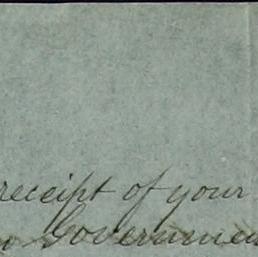 receipt of your
Governmen